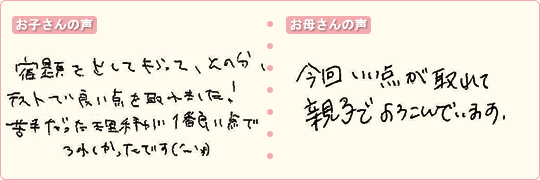 お子さんの声
宿題をとしてもらって、そのかい、
テストでい良い点を取れました!
苦手だった理科が1番良い点で
うれしかったです(^^)
お母さんの声
今回いい点が取れて
親子でよろこんでいます。